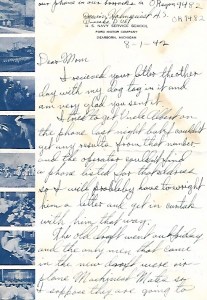 our phone in our barracks is ORegon 9482
U. S. NAVY SERVICE SCHOOL
FORD MOTOR COMPANY
DEARBORN, MICHIGAN
8-1-42
Dear Mom,
I recieved your letter the other
day with my dog tag in it and
am very glad you sent it.
I tried to get Uncle
on the phone last night but couldn't
get any results from that number
and the operator couldn't find
a phone listed for that address
so I will probably have to wright
him a letter and get in contact
with him that way.
The old draft went out today
and the only men that came
in the new were air
plane Machinist Mates so
I suppose they are going to